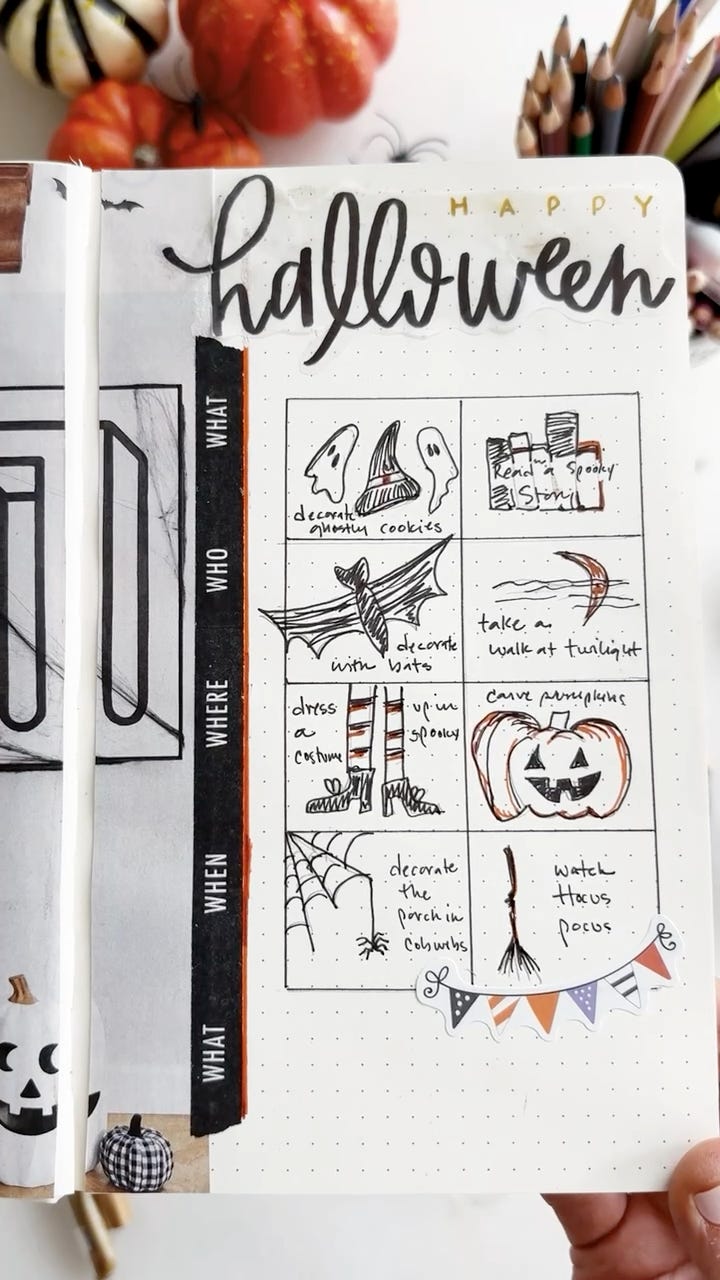 HAPPY
halloween
WHAT
WHO
WHERE
WHEN
WHAT
decorate
ghostly cookies
Read a Spooky
Story
decorate
with bats
take a
walk at twilight
dress up in
a spooky
costume
carve pumpkins
decorate
the
porch in
cobwebs
watch
Hocus
pocus